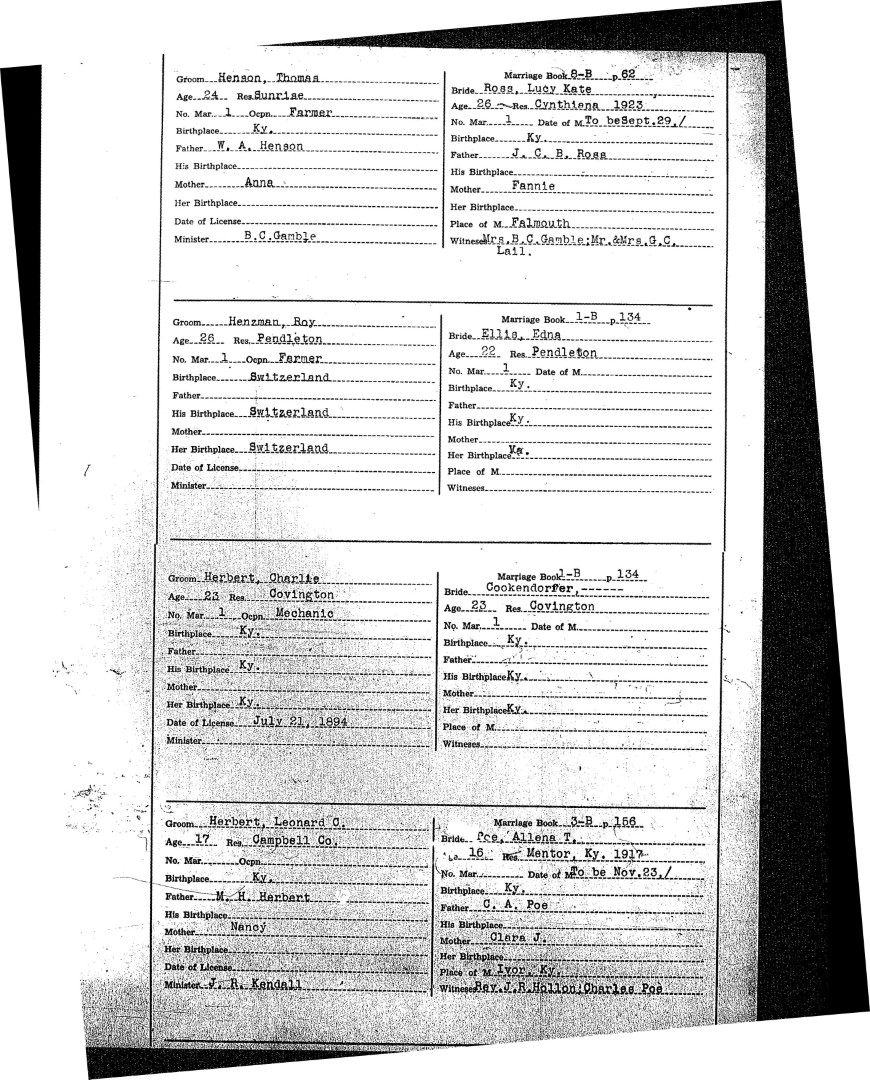 Groom Henson, Thomas
Age 24 Res Sunrise
No. Mar. 1 Ocpn. Farmer
Birthplace Ky.
Father W. A. Henson
His Birthplace
Mother Anna
Her Birthplace
Date of License
Minister B.C.Gamble
Marriage Book 8-B p. 62
Bride Ross, Lucy Kate
Age 26 Res. Cynthiena 1923
No. Mar. 1 Date of M. To beSept.29,/
Birthplace Ky.
Father J. C. B. Ross
His Birthplace
Mother Fannie
Her Birthplace
Place of M. Falmouth
Witnesses Mrs.B.C.Gamble;Mr.&Mrs.G.C.
Lail.
Groom Henzman, Roy
Age 26 Res. Pendleton
No. Mar. 1 Ocpn. Farmer
Birthplace Switzerland
Father
His Birthplace Switzerland
Mother
Her Birthplace Switzerland
Date of License
Minister
Marriage Book 1-B p. 134
Bride Ellis, Edna
Age 22 Res. Pendleton
No. Mar. 1 Date of M.
Birthplace Ky.
Father
His Birthplace Ky.
Mother
Her Birthplace
Place of M.
Witnesses
Groom Herbert, Charlie
Age 23 Res. Covington
No. Mar. 1 Ocpn. Mechanic
Birthplace Ky.
Father
His Birthplace Ky.
Mother
Her Birthplace Ky.
Date of License July 21, 1894
Minister
Marriage Book 1-B p. 134
Bride Cookendorfer,------
Age 23 Res. Covington
No. Mar. 1 Date of M.
Birthplace Ky.
Father
His Birthplace Ky.
Mother
Her Birthplace Ky.
Place of M.
Witnesses
Groom Herbert, Leonard C.
Age 17 Res. Campbell Co.
No. Mar. Ocpn.
Birthplace Ky.
Father M. H. Herbert
His Birthplace
Mother Nancy
Her Birthplace
Date of License
Minister J. R. Kendall
Marriage Book 3-B p. 156
Bride Poe, Allena T.
16 Res. Mentor, Ky. 1917
No. Mar. Date of M To be Nov.23,/
Birthplace Ky.
Father C. A. Poe
His Birthplace
Mother Clara J.
Her Birthplace
Place of M. Ivor, Ky.
Witnesses Rev.J.R.Hollon;Charles Poe